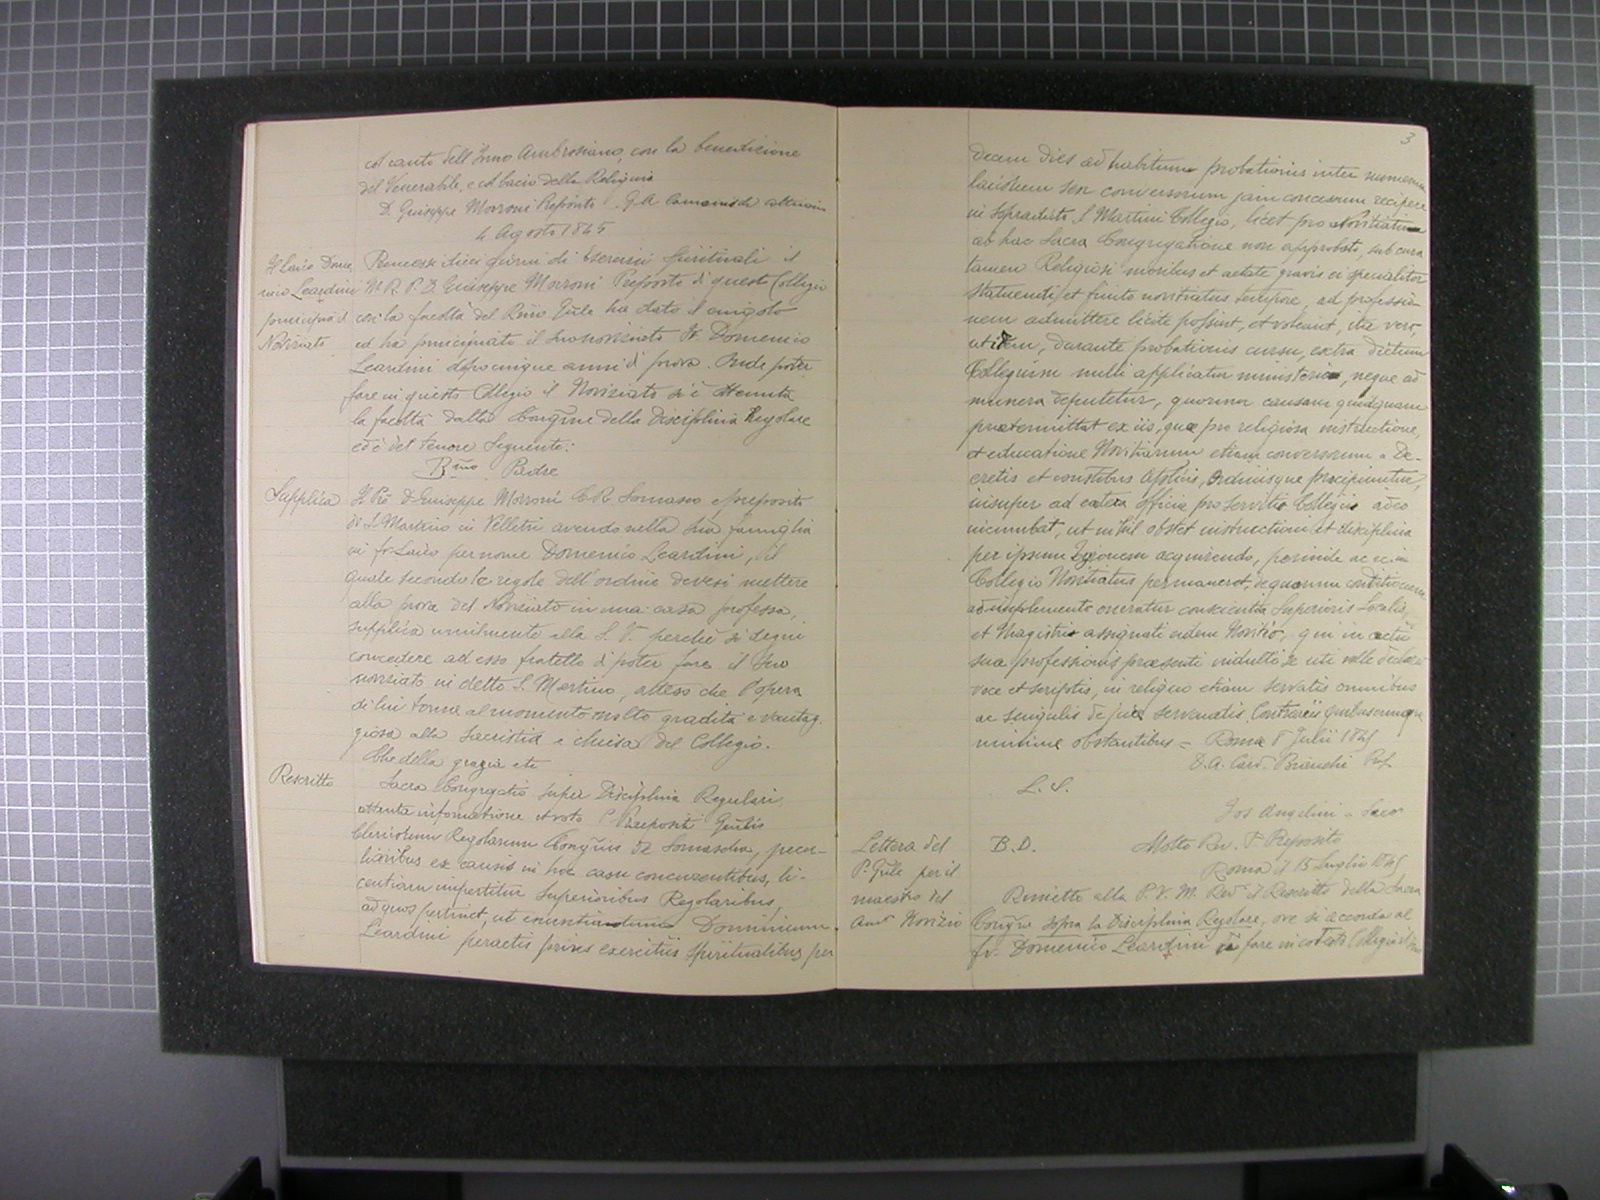 col canto dell'Inno Ambrosiano, con la benedizione
del Venerabile, e col bacio della Reliquia
D. Giuseppe Morroni Preposito
4 Agosto 1845
Il laico Dome
nico Leardini
principia il
Noviziato
Premessi dieci giorni di Esercizi Spirituali il
M. R. P. D. Giuseppe Morroni Preposto di questo Collegio
con la facoltà del Rmo Gnle ha dato il cingolo
ed ha principiato il suo noviziato Fr. Domenico
Leardini dopo cinque anni di prova. Onde poter
fare in questo Collegio il Noviziato si è ottenuta
la facoltà dalla Congne della Disciplina Regolare
ed è del tenore seguente:
Bmo Padre
Supplica
Il Pre D. Giuseppe Morroni C.R. Somasco e preposito
di S. Martino in Velletri avendo nella sua famiglia
un fr. Laico per nome Domenico Leardini, il
quale secondo le regole dell'ordine devesi mettere
alla prova del Noviziato in una casa professa,
supplica umilmente alla S. V. perchè si degni
concedere ad esso fratello di poter fare il suo
noviziato in detto S. Martino, atteso che l'opera
di lui torna al momento molto gradita e vantag.
giosa alla sacristia e chiesa del Collegio.
Che della grazia etc
Rescritto
Sacra Congregatio super Disciplina Regulari
attenta informatione et voto P. Gnlis
Clericorum Regolarum Congnis de Somascha, pecu-
liaribus ex causis in hoc casu concurrentibus, li-
centiam impertitur Superioribus Regolaribus,
ad quos pertinet, ut enuntiatum Dominicum
Leardini peractis prius exercitiis spiritualibus per
3
decem dies ad habitum probationis inter numerum
laicorum seu conversorum jam concessum recipere
in sopradicto S. Martini Collegio, licet pro Novitiatum
ab hac Sacra Congregatione non approbato, sub cura
tamen Religiosi moribus et aetate gravis ei specialiter
statuendi, et finito novitiatus tempore, ad professio
nem admittere licite possint, et valeant, ita vero
ut idem, durante probationis cursu, extra dictum
Collegium nulli applicatur ministerio, neque ad
munera deputetur, quorum causam quidquam
praetermittat ex iis, quae pro religiosa instructione,
et educatione Novitiorum etiam conversorum a De-
cretis et constibus Apslicis, Ordinisque praecipiuntur,
insuper ad cetera officia pro servitio Collegii adeo
incumbat, ut nihil obstet instructioni et disciplina
per ipsum acquirendo, perinde ac si in
Collegio Novitiatus permaneret, de quorum conditionum
adimplemento oneratur conscientia Superioris Localis,
et Magistri assignati eidem Novitio, qui in actu
suae professionis praesenti indulto se uti velle declaret
voce et scriptis, in reliquo etiam servatis omnibus
ac singulis de jure servandis. Contrariis quibuscumque
minime obstantibus = Roma 8 Julii 1845
Card. Bianchi Pref.
L. S.
Jos Angelini
Lettera del
P. Gnle per il
maestro del
Novizio
B. D.
Molto Rev. P. Preposito
Roma il 15 Luglio 1845
Rimetto alla P. V. M. Revda il Rescritto della Sacra
Congne sopra la Disciplina Regolare, ove si accorda al
fr. Domenico Leardini di fare in cotesto Collegio il